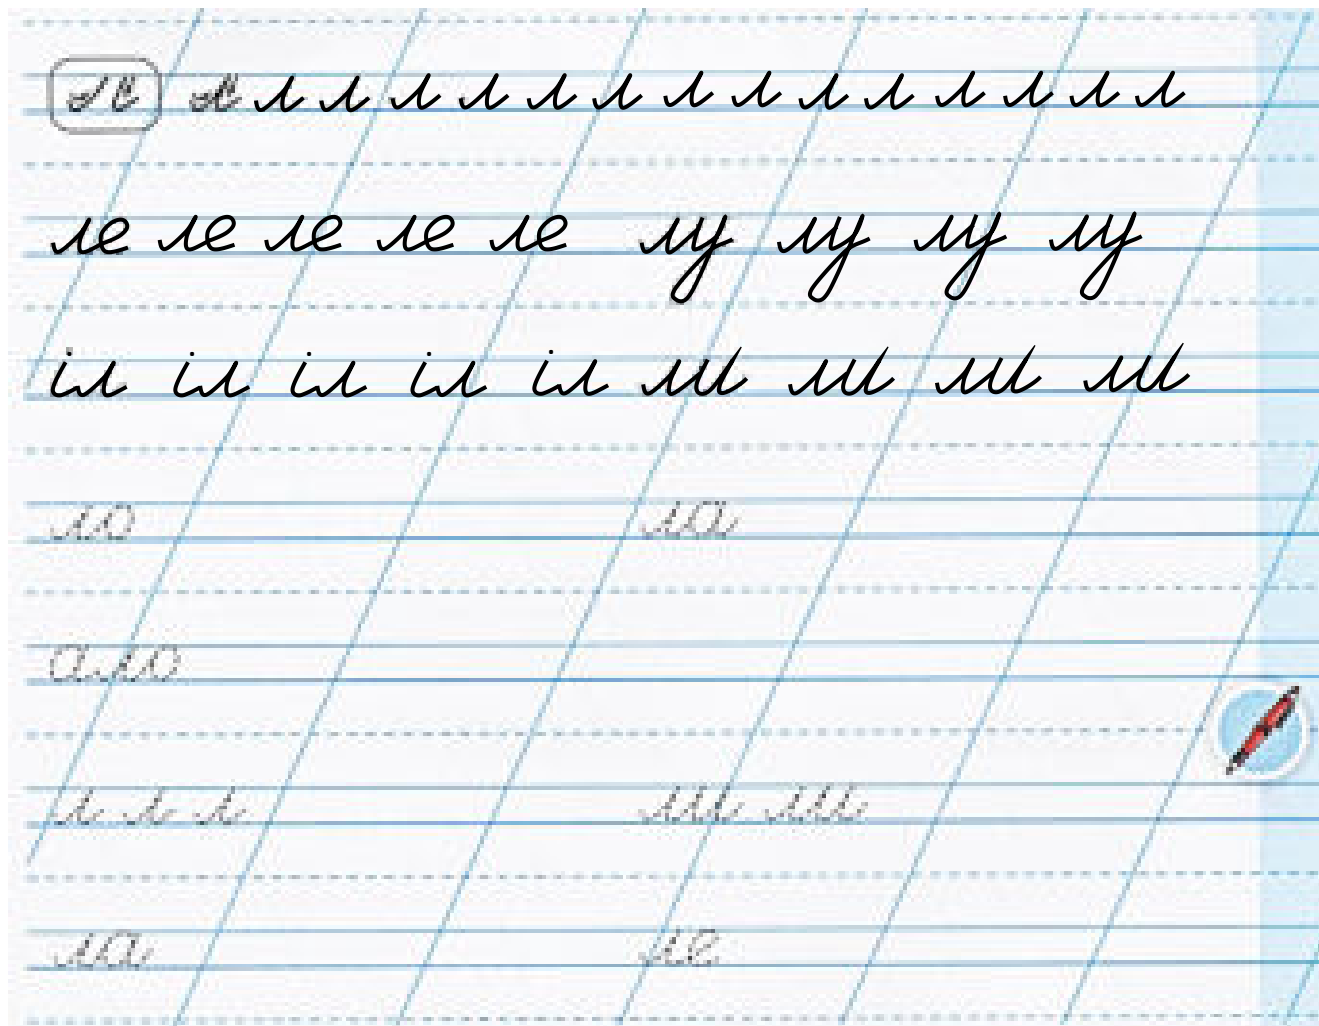 л л л л л л л л л л л л л л л
ле ле ле ле ле лу лу лу лу
іл іл іл іл іл ли ли ли ли
ло ла
ало
л л л ли ли
ла ле